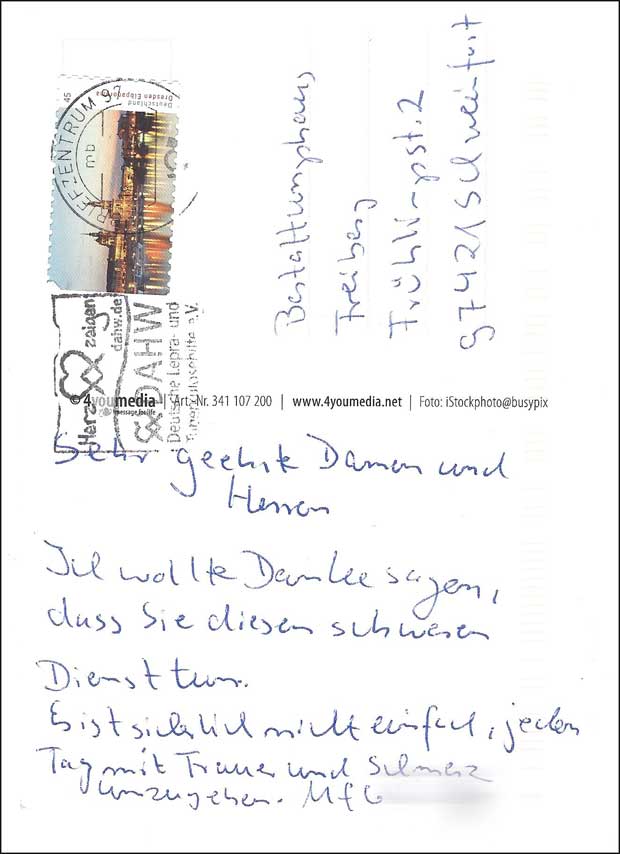 Deutschland
Dresden Elbpanorama
45
BRIEFZENTRUM 97
mb
Herz zeigen
dahw.de
DAHW
Deutsche Lepra- und
Tuberkulosehilfe e.V.
Bestattungshaus
Freiberg
Frühlingsst. 2
97421 Schweinfurt
© 4youmedia | Art.-Nr. 341 107 200 | www.4youmedia.net | Foto: iStockphoto@busypix
message for life
Sehr geehrte Damen und
Herren
Ich wollte Danke sagen,
dass Sie diesen schweren
Dienst tun.
Es ist sicherlich nicht einfach, jeden
Tag mit Trauer und Schmerz
umzugehen. MfG